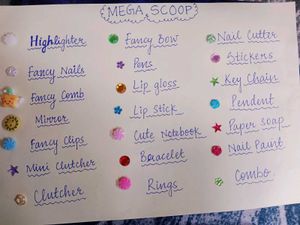 MEGA SCOOP
Highlighter
Fancy Nails
Fancy Comb
Mirror
Fancy Clips
Mini Clutcher
Clutcher
Fancy Bow
Pens
Lip gloss
Lip stick
Cute Notebook
Bracelet
Rings
Nail Cutter
Stickers
Key Chain
Pendent
Paper Soap
Nail Paint
Combo